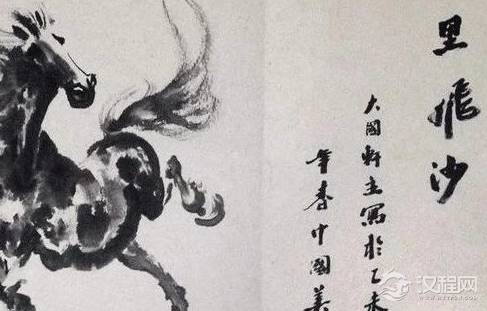 里飛沙
大國軒主寫於乙未
年春中國美
汉程网